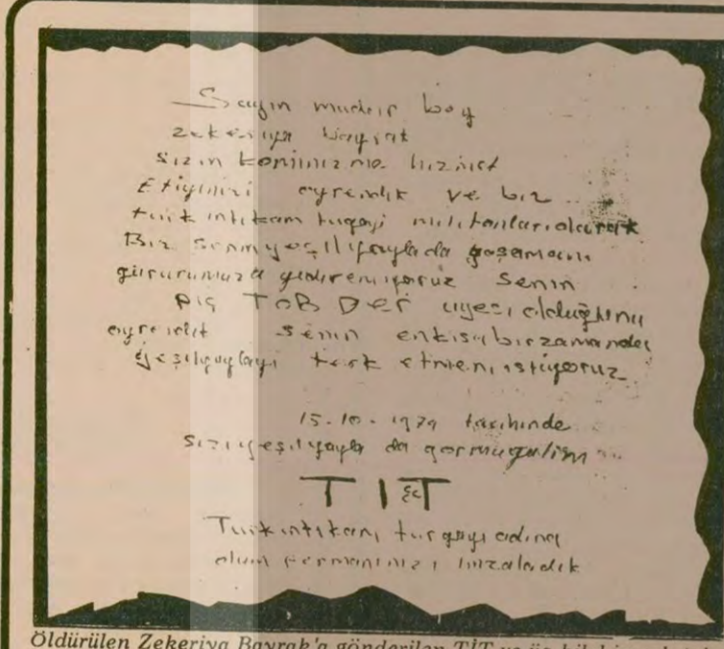 Sayın müdür bey
zekeriya bayrak
sizin komünizme hizmet
Etiğinizi oyrendik ve biz
türk intikam tugayi militanlari olarak
Biz senin yeşilyaylada yaşamanı
gururumuza yediremiyoruz Senin
piç TOB DER uyesi olduğunu
oyrendik senin en kısa bir zamanda
yeşilyaylayi terk etmeni istiyoruz
15-10-1979 tarihinde
sizi yeşilyayla da gormuyelim
TİT
Türk intikam turgayı adına
olum fermanınızı imzaladık
Öldürülen Zekeriya Bayrak'a gönderilen TİT